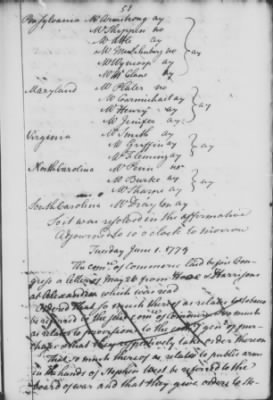 51
Pensylvania Mr Armstrong ay
Mr Shippen no
Mr Atlee ay
Mr Muhlenberg no ay
Mr Wynkoop ay
Mr McClene ay
Maryland Mr Plater no
Mr Carmichael ay
Mr Henry ay ay
Mr Jenifer ay
Virginia Mr Smith ay
Mr Griffin ay ay
Mr Fleming ay
North Carolina Mr Penn no
Mr Burke ay ay
Mr Sharpe ay
South Carolina Mr Drayton ay
So it was resolved in the affirmative
Adjourned to 10 o'clock to morrow
Tuesday June 1. 1779
The comee of commerce laid before Con-
gress a letter of May 26 from & Harrison
at Alexandria which was read
Ordered that so much thereof as relates to tobacco
be referred to the said comee of commerce & so much
as relates to provisions to the comy genl of pur-
chases & that they respectively take order thereon
That so much thereof as relates to public arms
in the hands of Stephen West be referred to the
board of war and that they give orders to Ste-